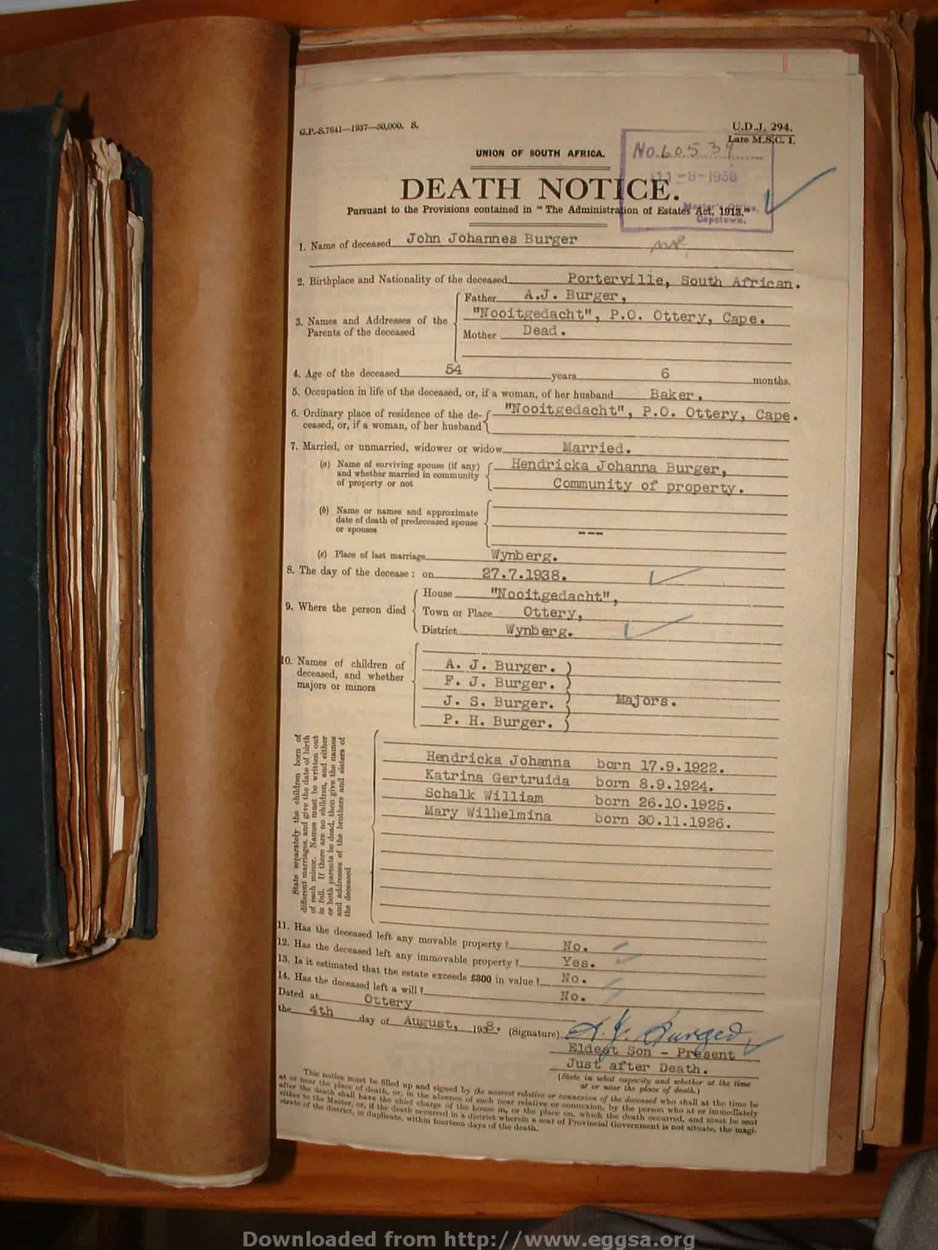 G.P.-S.7641—1937—50,000. S.
U.D.J. 294.
Late M.S.C. 1.
UNION OF SOUTH AFRICA.
No. 60537
11-8-1938
Master's Office,
Capetown.
DEATH NOTICE.
Pursuant to the Provisions contained in "The Administration of Estates Act, 1913."
1. Name of deceased John Johannes Burger
2. Birthplace and Nationality of the deceased Porterville, South African.
3. Names and Addresses of the Parents of the deceased
Father A.J. Burger,
"Nooitgedacht", P.O. Ottery, Cape.
Mother Dead.
4. Age of the deceased 54 years 6 months.
5. Occupation in life of the deceased, or, if a woman, of her husband Baker.
6. Ordinary place of residence of the de- "Nooitgedacht", P.O. Ottery, Cape.
ceased, or, if a woman, of her husband
7. Married, or unmarried, widower or widow Married.
(a) Name of surviving spouse (if any) Hendricka Johanna Burger,
and whether married in community
of property or not Community of property.
(b) Name or names and approximate
date of death of predeceased spouse
or spouses ---
(c) Place of last marriage Wynberg.
8. The day of the decease: on 27.7.1938.
9. Where the person died
House "Nooitgedacht",
Town or Place Ottery,
District Wynberg.
10. Names of children of
deceased, and whether
majors or minors
A. J. Burger. )
F. J. Burger. )
J. S. Burger. ) Majors.
P. H. Burger. )
State separately the children born of
different marriages, and give the date of birth
of each minor. Names must be written out
in full. If there are no children, and either
or both parents be dead, then give the names
and addresses of the brothers and sisters of
the deceased
Hendricka Johanna born 17.9.1922.
Katrina Gertruida born 8.9.1924.
Schalk William born 26.10.1925.
Mary Wilhelmina born 30.11.1926.
11. Has the deceased left any movable property? No.
12. Has the deceased left any immovable property? Yes.
13. Is it estimated that the estate exceeds £300 in value? No.
14. Has the deceased left a will? No.
Dated at Ottery
the 4th day of August, 1938. (Signature) A. J. Burger
Eldest Son - Present
Just after Death.
(State in what capacity and whether at the time
at or near the place of death.)
This notice must be filled up and signed by the nearest relative or connexion of the deceased who shall at the time be
at or near the place of death, or, in the absence of such near relative or connexion, by the person who at or immediately
after the death shall have the chief charge of the house in, or the place on, which the death occurred, and must be sent
either to the Master, or, if the death occurred in a district wherein a seat of Provincial Government is not situate, the magi-
strate of the district, in duplicate, within fourteen days of the death.
Downloaded from http://www.eggsa.org